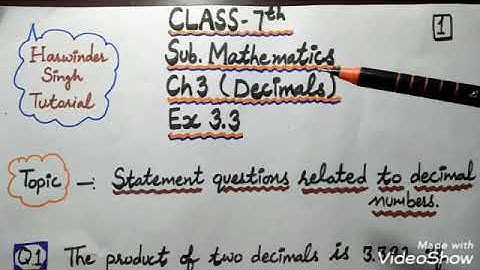 Harwinder
Singh
Tutorial
CLASS-7th
Sub. Mathematics
Ch 3 (Decimals)
Ex 3.3
1
Topic -: Statement questions related to decimal
numbers.
Q1 The product of two decimals is
Made with
VideoShow